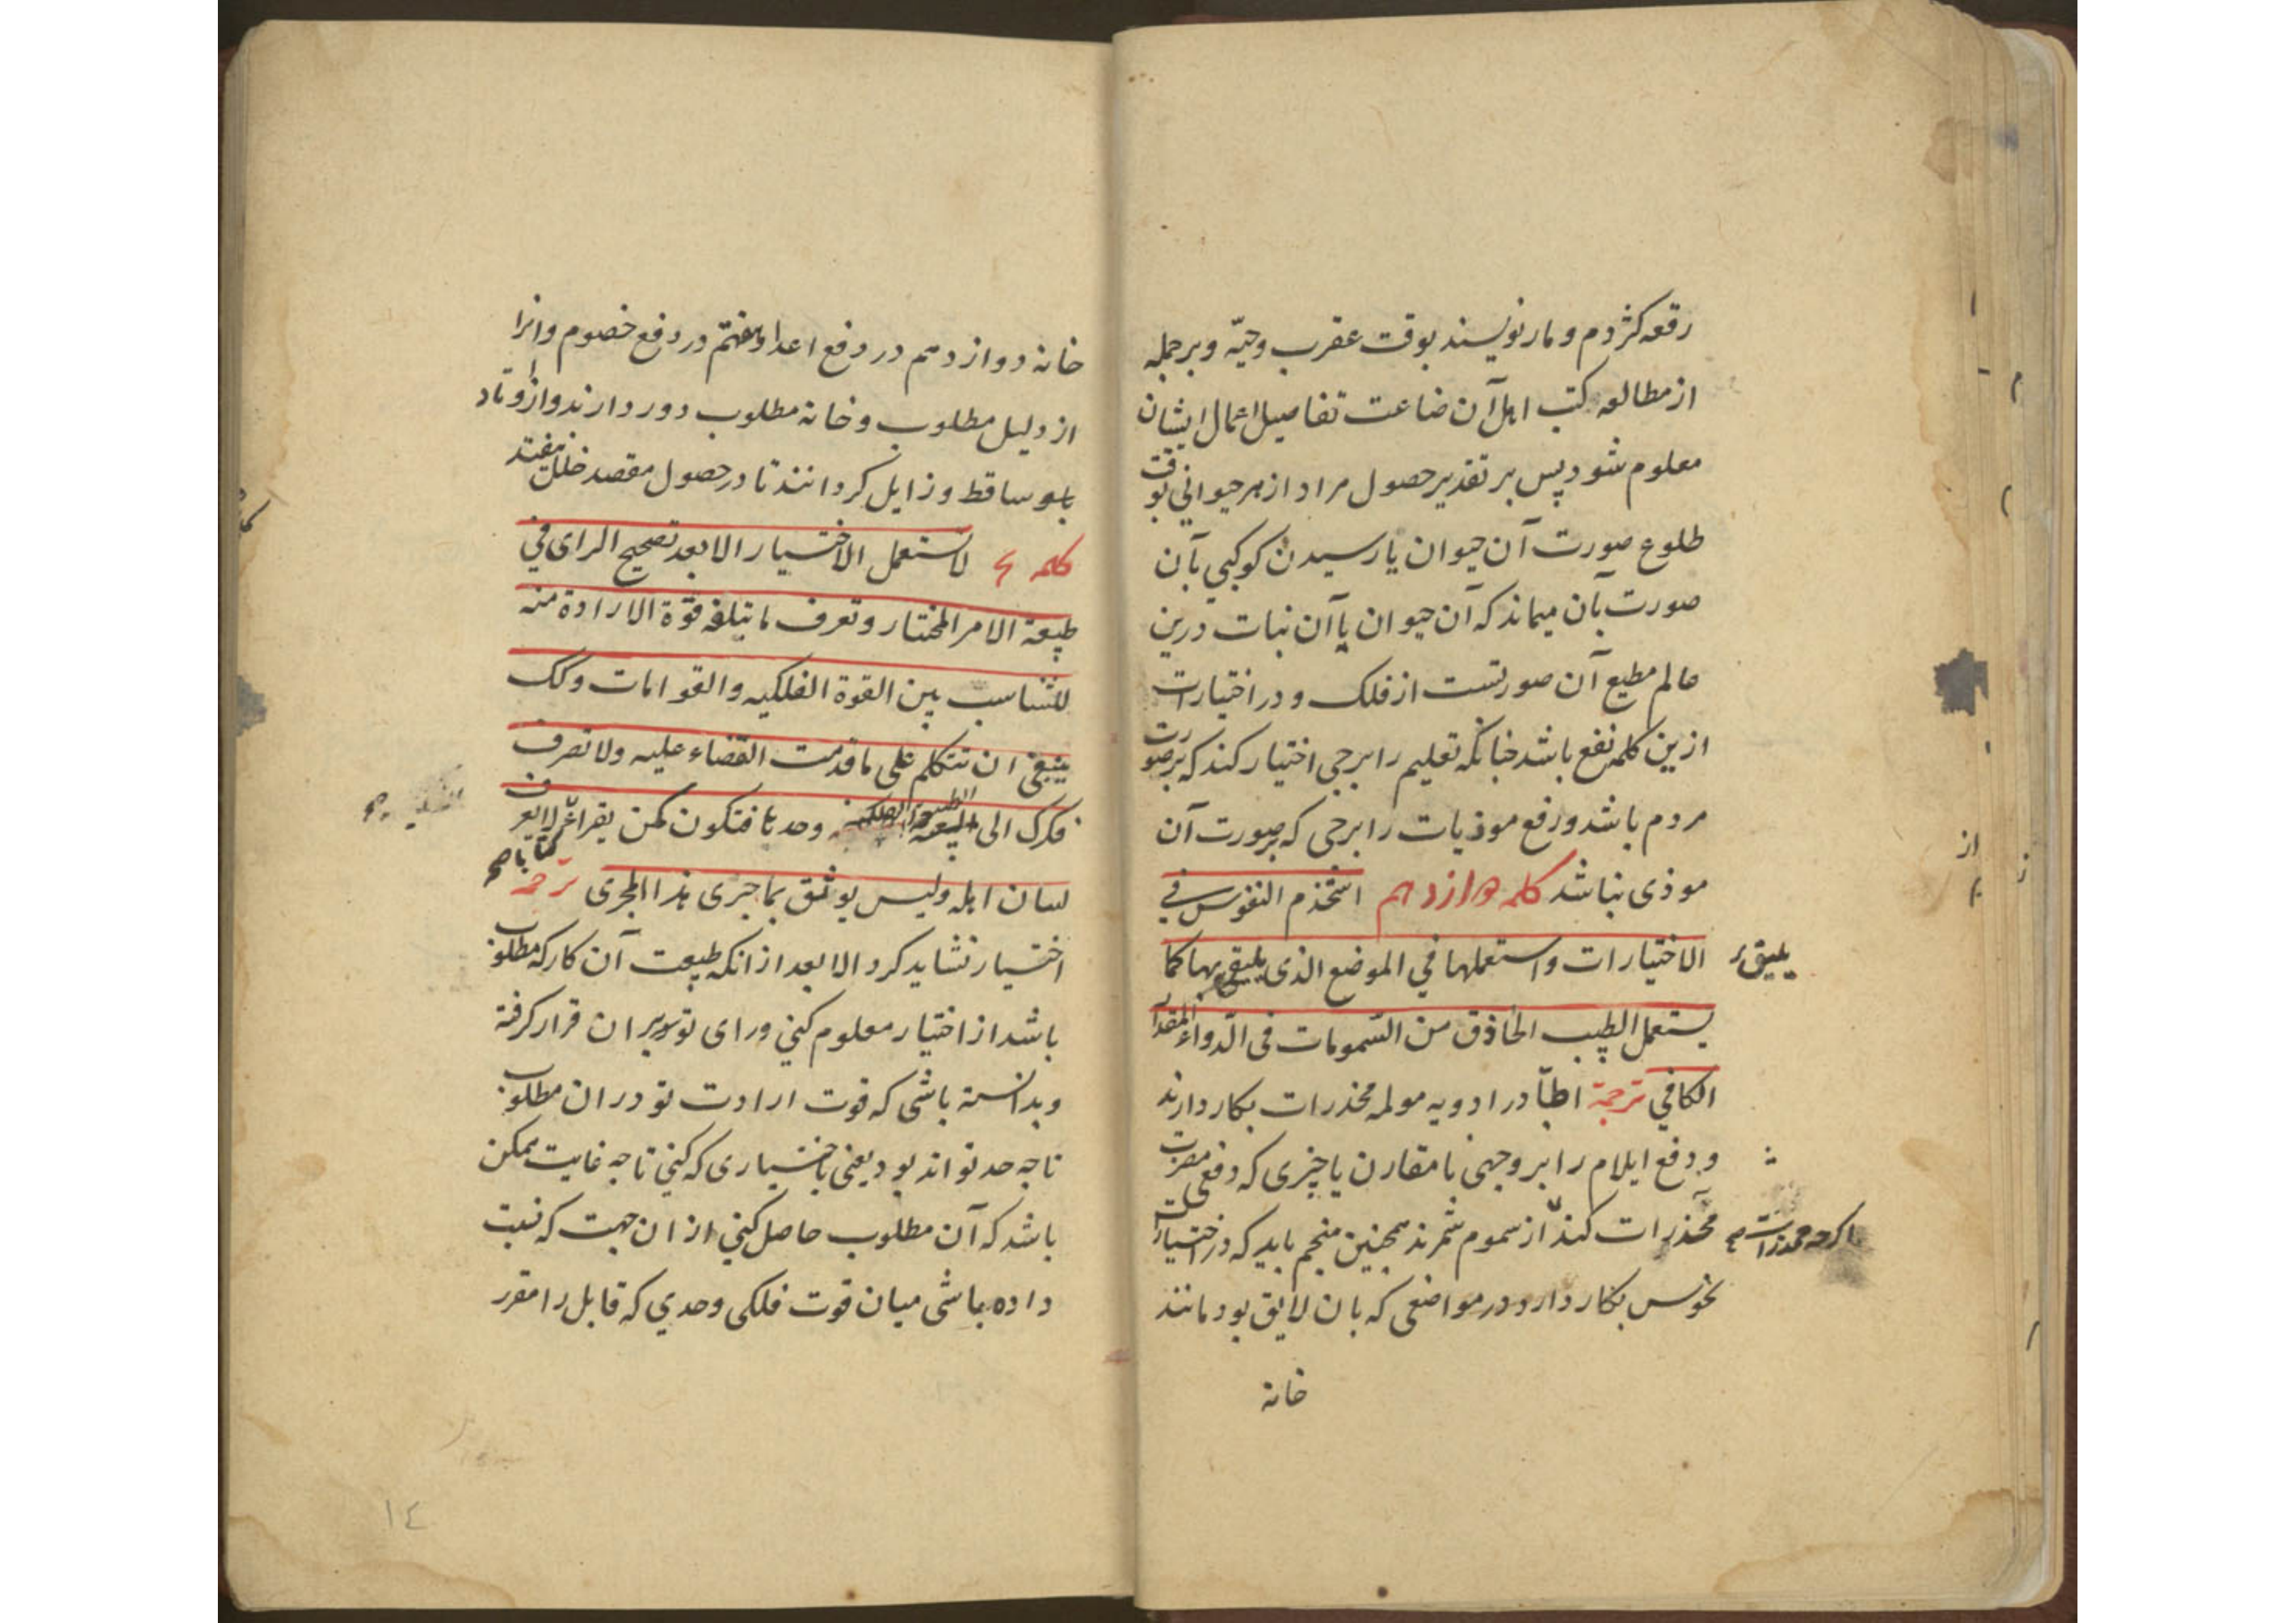 رقعه کژدم و مار نویسند بوقت عقرب و حیّه و برجمله
از مطالعه کتب اهل آن ضاعت تفاصیل اعمال ایشان
معلوم شود پس بر تقدیر حصول مراد از هر حیوانی بوقت
طلوع صورت آن حیوان یا رسیدن کوکبی بآن
صورت بآن میماند که آن حیوان یا آن نبات درین
عالم مطیع آن صورتست از فلک و در اختیارات
ازین کلمه نفع باشد چنانکه تعلیم را برجی اختیار کند که بر صورت
مردم باشد و رفع موذیات را برجی که بر صورت آن
موذی نباشد کلمه دوازدهم استخدم النفوس فی
الاختیارات واستعملها فی الموضع الذی یلیق بها کما
یلیق
یستعمل الطبیب الحاذق من السّمومات فی الدّواء المقدار
الکافی ترجمة اطبّا در ادویه مولمه مخدرات بکار دارند
و دفع ایلام را بر وجهی با مقارن یا چیزی که دفع مضرت
مخدرات کند از سموم شمرند همچنین منجم باید که در اختیارات
اکرچه مخدرات
نحوس بکار دارد در مواضعی که بان لایق بود مانند
خانه
خانه دوازدهم در دفع اعدا و هفتم در دفع خصوم و انرا
از دلیل مطلوب و خانه مطلوب دور دارند و از اوتاد
ساقط و زایل کردانند تا در حصول مقصد خلل نیفتد
کلمه لا تستعمل الاختیار الا بعد تصحیح الرای فی
طبیعة الامر المختار و تعرف ما تبلغه قوّة الارادة منه
للتناسب بین القوة الفلکیه والقوامات و کک
ینبغی ان تتکلم علی ما قدمت القضاء علیه ولا تصرف
فکرک الی الطبیعة الفلکیه وحدها فتکون کمن یقرا کتابا لا یعرف
لسان اهله ولیس یوثق بما جری هذا المجری ترجمه
اختیار نشاید کرد الا بعد از انکه طبیعت آن کار که مطلوب
باشد از اختیار معلوم کنی و رای تو بر ان قرار کرفته
و بدانسته باشی که قوت ارادت تو در ان مطلوب
تا چه حد تواند بود یعنی باختیاری که کنی تا چه غایت ممکن
باشد که آن مطلوب حاصل کنی از ان جهت که نسبت
داده باشی میان قوت فلکی وحدی که قابل را مقرر
١٤